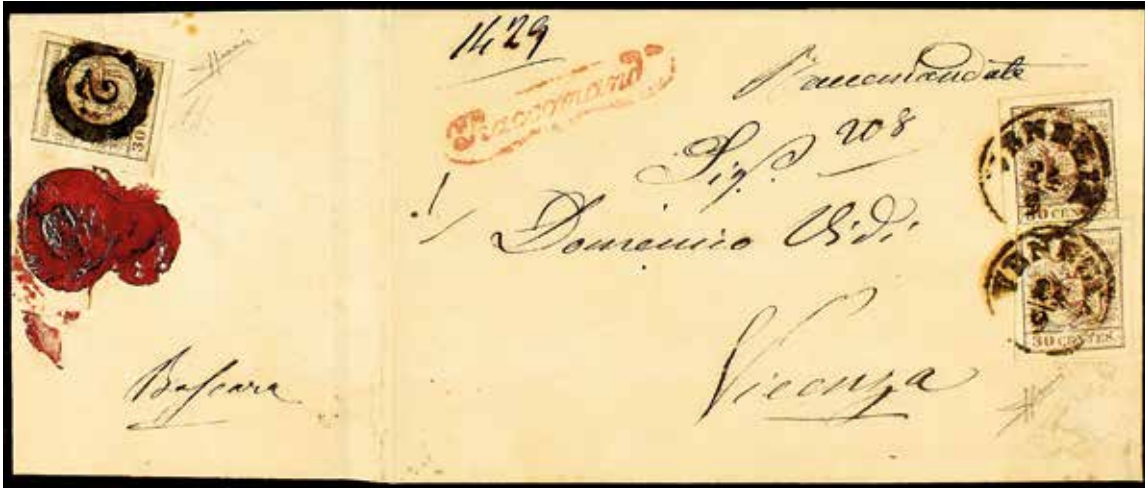 30
1429
Raccomand^a
Raccomandate
Sig^r. 208
Domenico Vidi
Vicenza
VENEZIA
30 CENTES.
VENEZIA
30 CENTES.